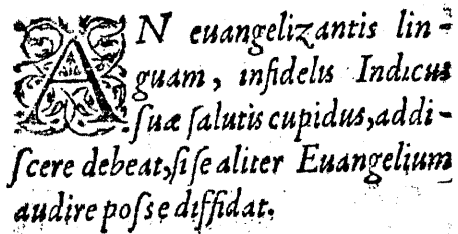 AN euangelizantis lin-
guam, infidelis Indicus
ſuæ ſalutis cupidus, addi-
ſcere debeat, ſi ſe aliter Euangelium
audire poſse diffidat.